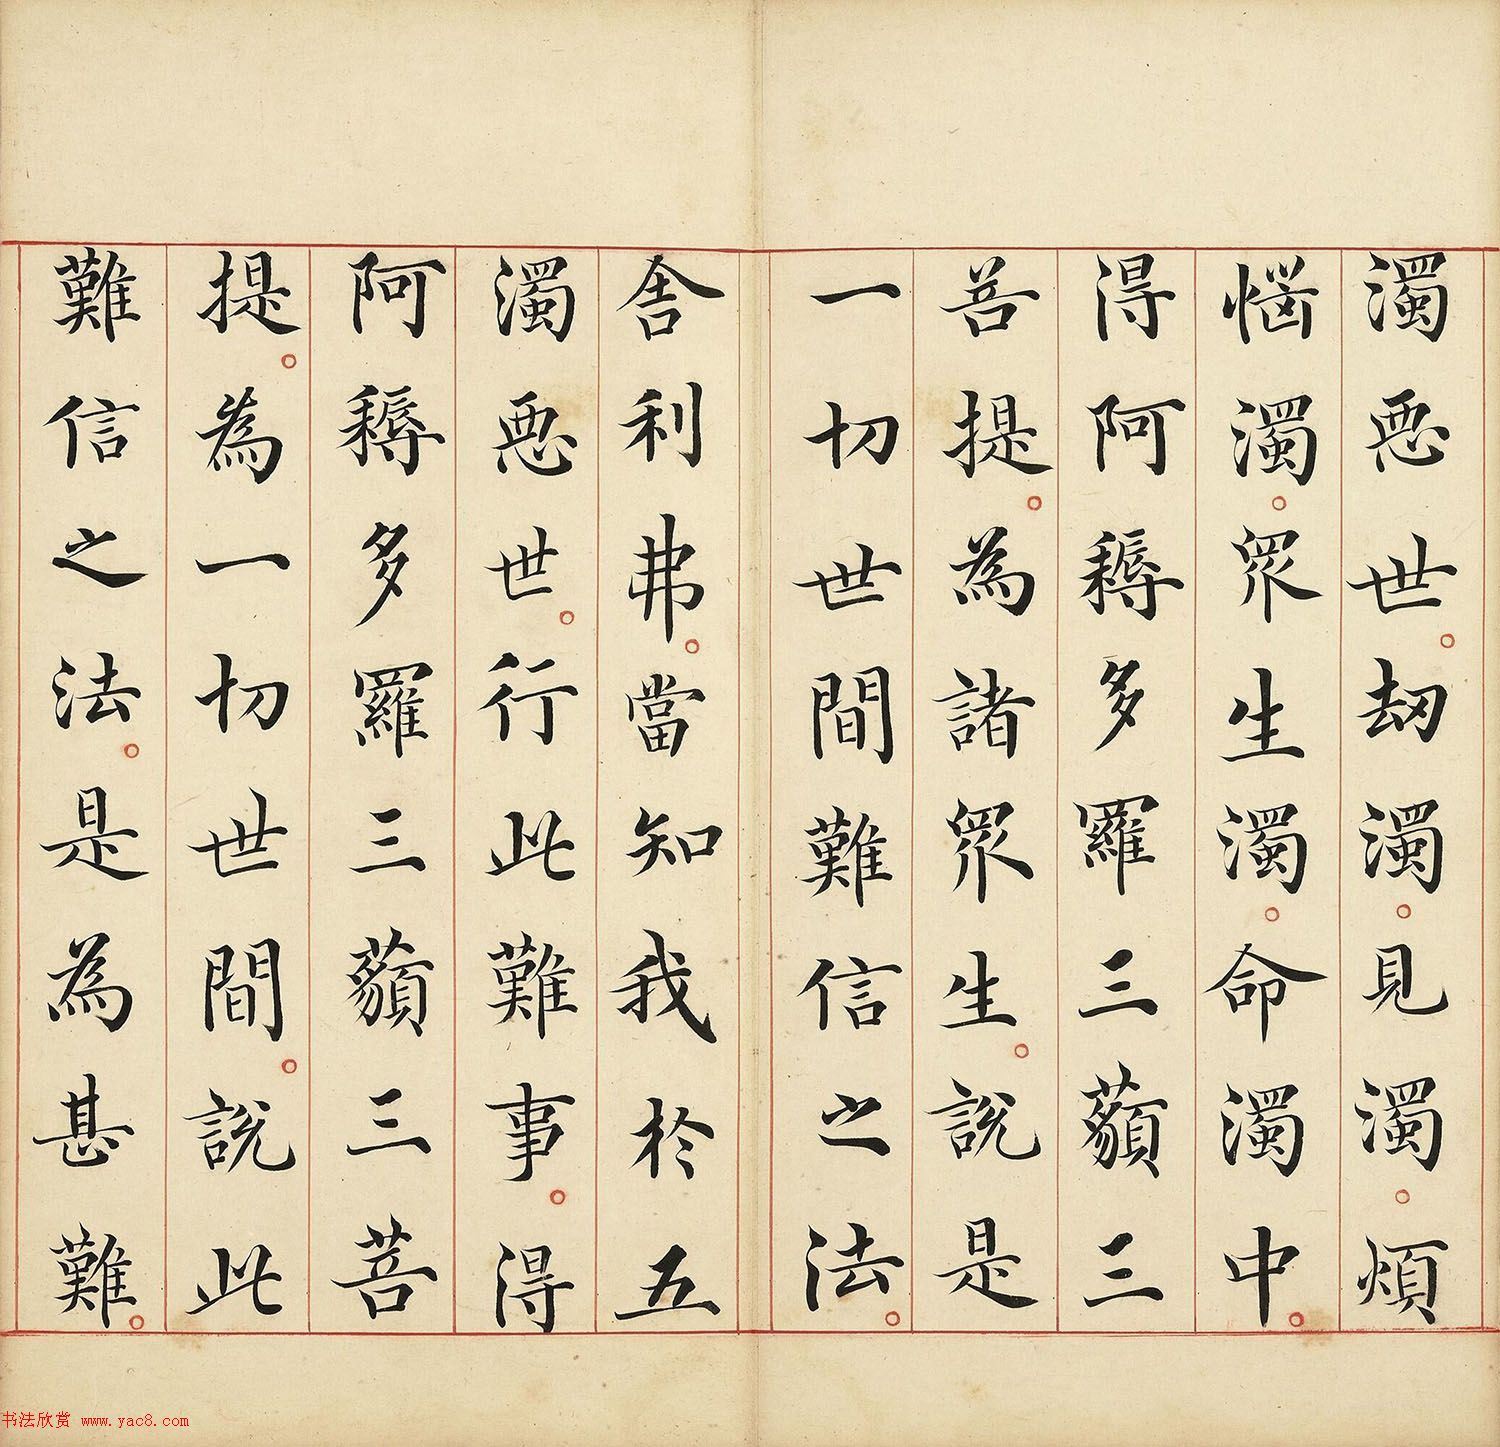 濁惡世。劫濁。見濁。煩
惱濁。眾生濁。命濁中。
得阿耨多羅三藐三
菩提。為諸眾生。說是
一切世間難信之法。
舍利弗。當知我於五
濁惡世。行此難事。得
阿耨多羅三藐三菩
提。為一切世間。說此
難信之法。是為甚難。
书法欣赏 www.yac8.com